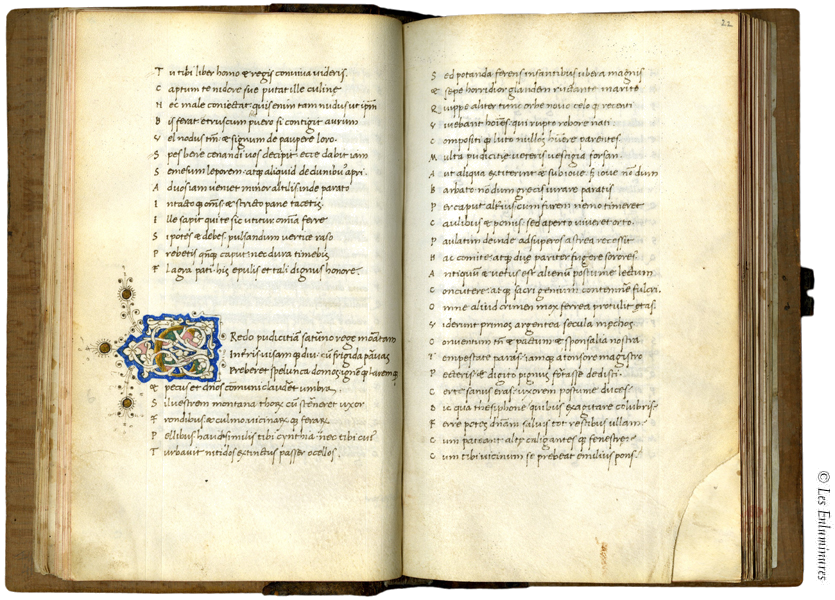 T u tibi liber homo & regis conviva videris.
C aptum te nidore sue putat ille culine
N ec male coniectat: quis enim tam nudus ut ipm
B is ferat: etruscum puero si contigit aurum
V el nodus tm & signum de paupere loro.
S pes bene cenandi vos decipit ecce dabit iam
S emesum leporem: atq aliquid de clunibus apri.
A d nos iam veniet minor altilis inde parato
I ntactoq omnes & stricto pane tacetis.
I lle sapit qui te sic utitur omnia ferre
S i potes & debes pulsandum vertice raso
P rebebis caput: nec dura timebis
F lagra pati his epulis et tali dignus honore.
C Redo pudicitiam saturno rege moratam
In terris visamq diu: cum frigida parvas
Preberet spelunca domos ignemq laremq
& pecus et dnos communi clauderet umbra
S ilvestrem montana thorum cum sterneret uxor
F rondibus & culmo vicinarumq ferarum
P ellibus haud similis tibi cynthia nec tibi cuius
T urbavit nitidos extinctus passer ocellos.
22
S ed potanda ferens infantibus ubera magnis
& sepe horridior glandem ructante marito
Q uippe aliter tunc orbe novo celoq recenti
V ivebant homines qui rupto robore nati
C ompositiq luto nullos habuere parentes
M ulta pudicitie veteris vestigia forsan
A ut aliqua extiterint & sub iove s; iove nondum
B arbato nondum grecis iurare paratis
P er caput alterius cum furem nemo timeret
C aulibus & pomis sed aperto viveret orto.
P aulatim deinde ad superos astrea recessit
H ac comite: atq due pariter fugere sorores
A ntiquum & vetus est alienum postume lectum
C oncutere: atq sacri genium contemnere fulcri.
O mne aliud crimen mox ferrea protulit etas.
V iderunt primos argentea secula mechos
C onventum tn & pactum & sponsalia nostra
T empestate paras: iamq a tonsore magistro
P ecteris: & digito pignus fortasse dedisti.
C erte sanus eras: uxorem postume ducis
D ic qua thesiphone quibus exagitare colubris
F erre potes dnam salvis tot restibus ullam
C um pateant alte caligantesq fenestre
C um tibi vicinum se prebeat emilius pons.
© Les Enluminures